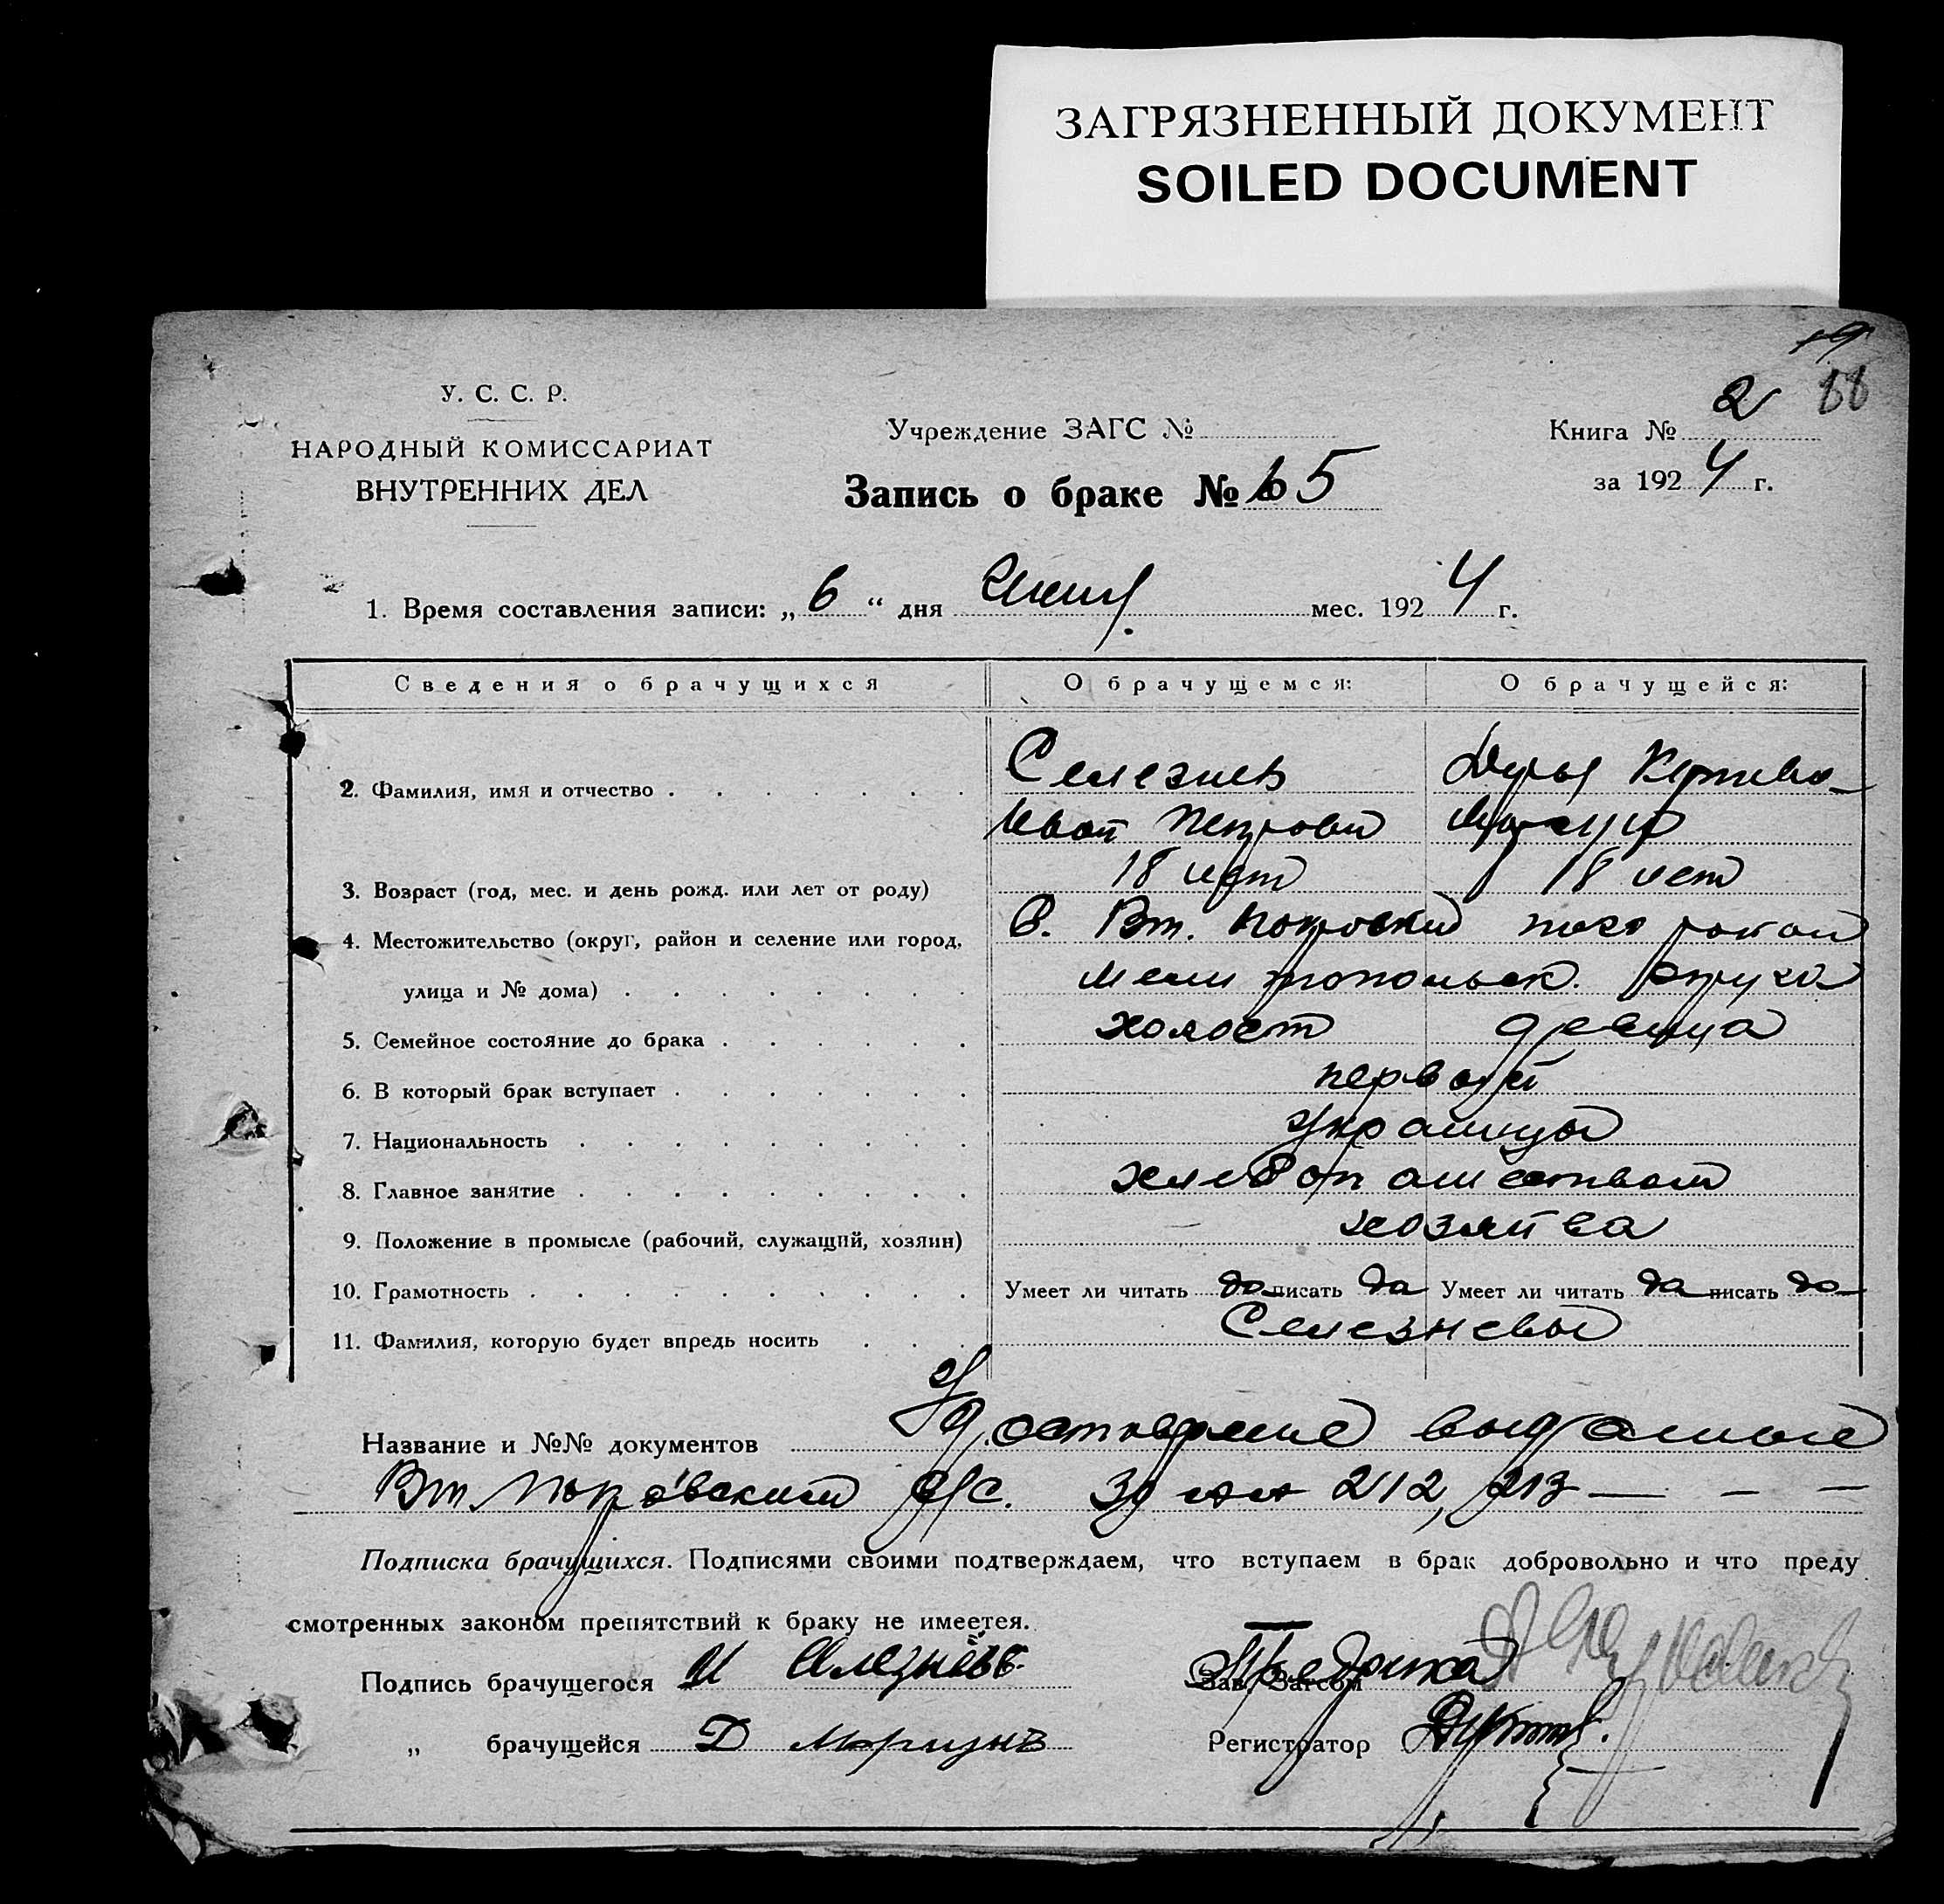 ЗАГРЯЗНЕННЫЙ ДОКУМЕНТ
SOILED DOCUMENT
У. С. С. Р.
НАРОДНЫЙ КОМИССАРИАТ
ВНУТРЕННИХ ДЕЛ
Учреждение ЗАГС №
Запись о браке № 65
Книга № 2
за 1924 г.
1. Время составления записи: „ 6 “ дня мес. 1924 г.
Сведения о брачущихся О брачущемся: О брачущейся:
2. Фамилия, имя и отчество Селезнев
Иван Петрович
3. Возраст (год, мес. и день рожд. или лет от роду) 18 лет 18 лет
4. Местожительство (округ, район и селение или город, с. Вт. Покровка того района
улица и № дома) Мелитопольск. округа
5. Семейное состояние до брака холост девица
6. В который брак вступает первый
7. Национальность Украинцы
8. Главное занятие хлебопашеством
9. Положение в промысле (рабочий, служащий, хозяин) хозяйва
10. Грамотность Умеет ли читать да писать да Умеет ли читать да писать да
11. Фамилия, которую будет впредь носить Селезневы
Название и №№ документов выданные
Вт. Покровским с/с. 212, 213
Подписка брачущихся. Подписями своими подтверждаем, что вступаем в брак добровольно и что преду
смотренных законом препятствий к браку не имеется.
Подпись брачущегося И Селезнёвъ Зав. Загсом
„ брачущейся Д Регистратор